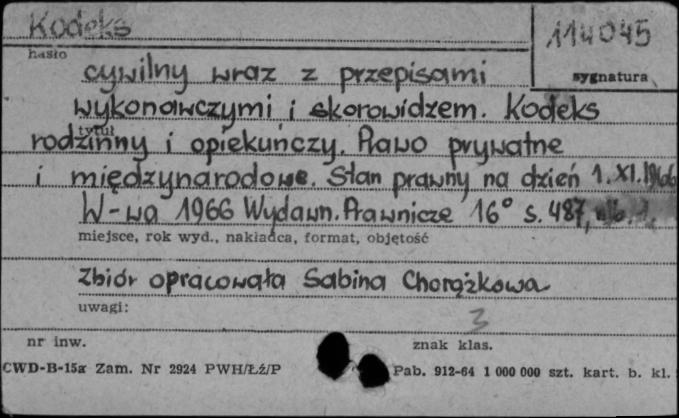 Kodeks 114045
hasło
cywilny wraz z przepisami
sygnatura
wykonawczymi i skorowidzem. Kodeks
tytuł
rodzinny i opiekuńczy. Prawo prywatne
i międzynarodowe. Stan prawny na dzień 1.XI.1966
W-wa 1966 Wydawn. Prawnicze 16° s. 487,
miejsce, rok wyd., nakładca, format, objętość
Zbiór opracowała Sabina Chorążkowa
uwagi:
3
nr inw. znak klas.
CWD-B-15a Zam. Nr 2924 PWH/Łź/P Pab. 912-64 1 000 000 szt. kart. b. kl.